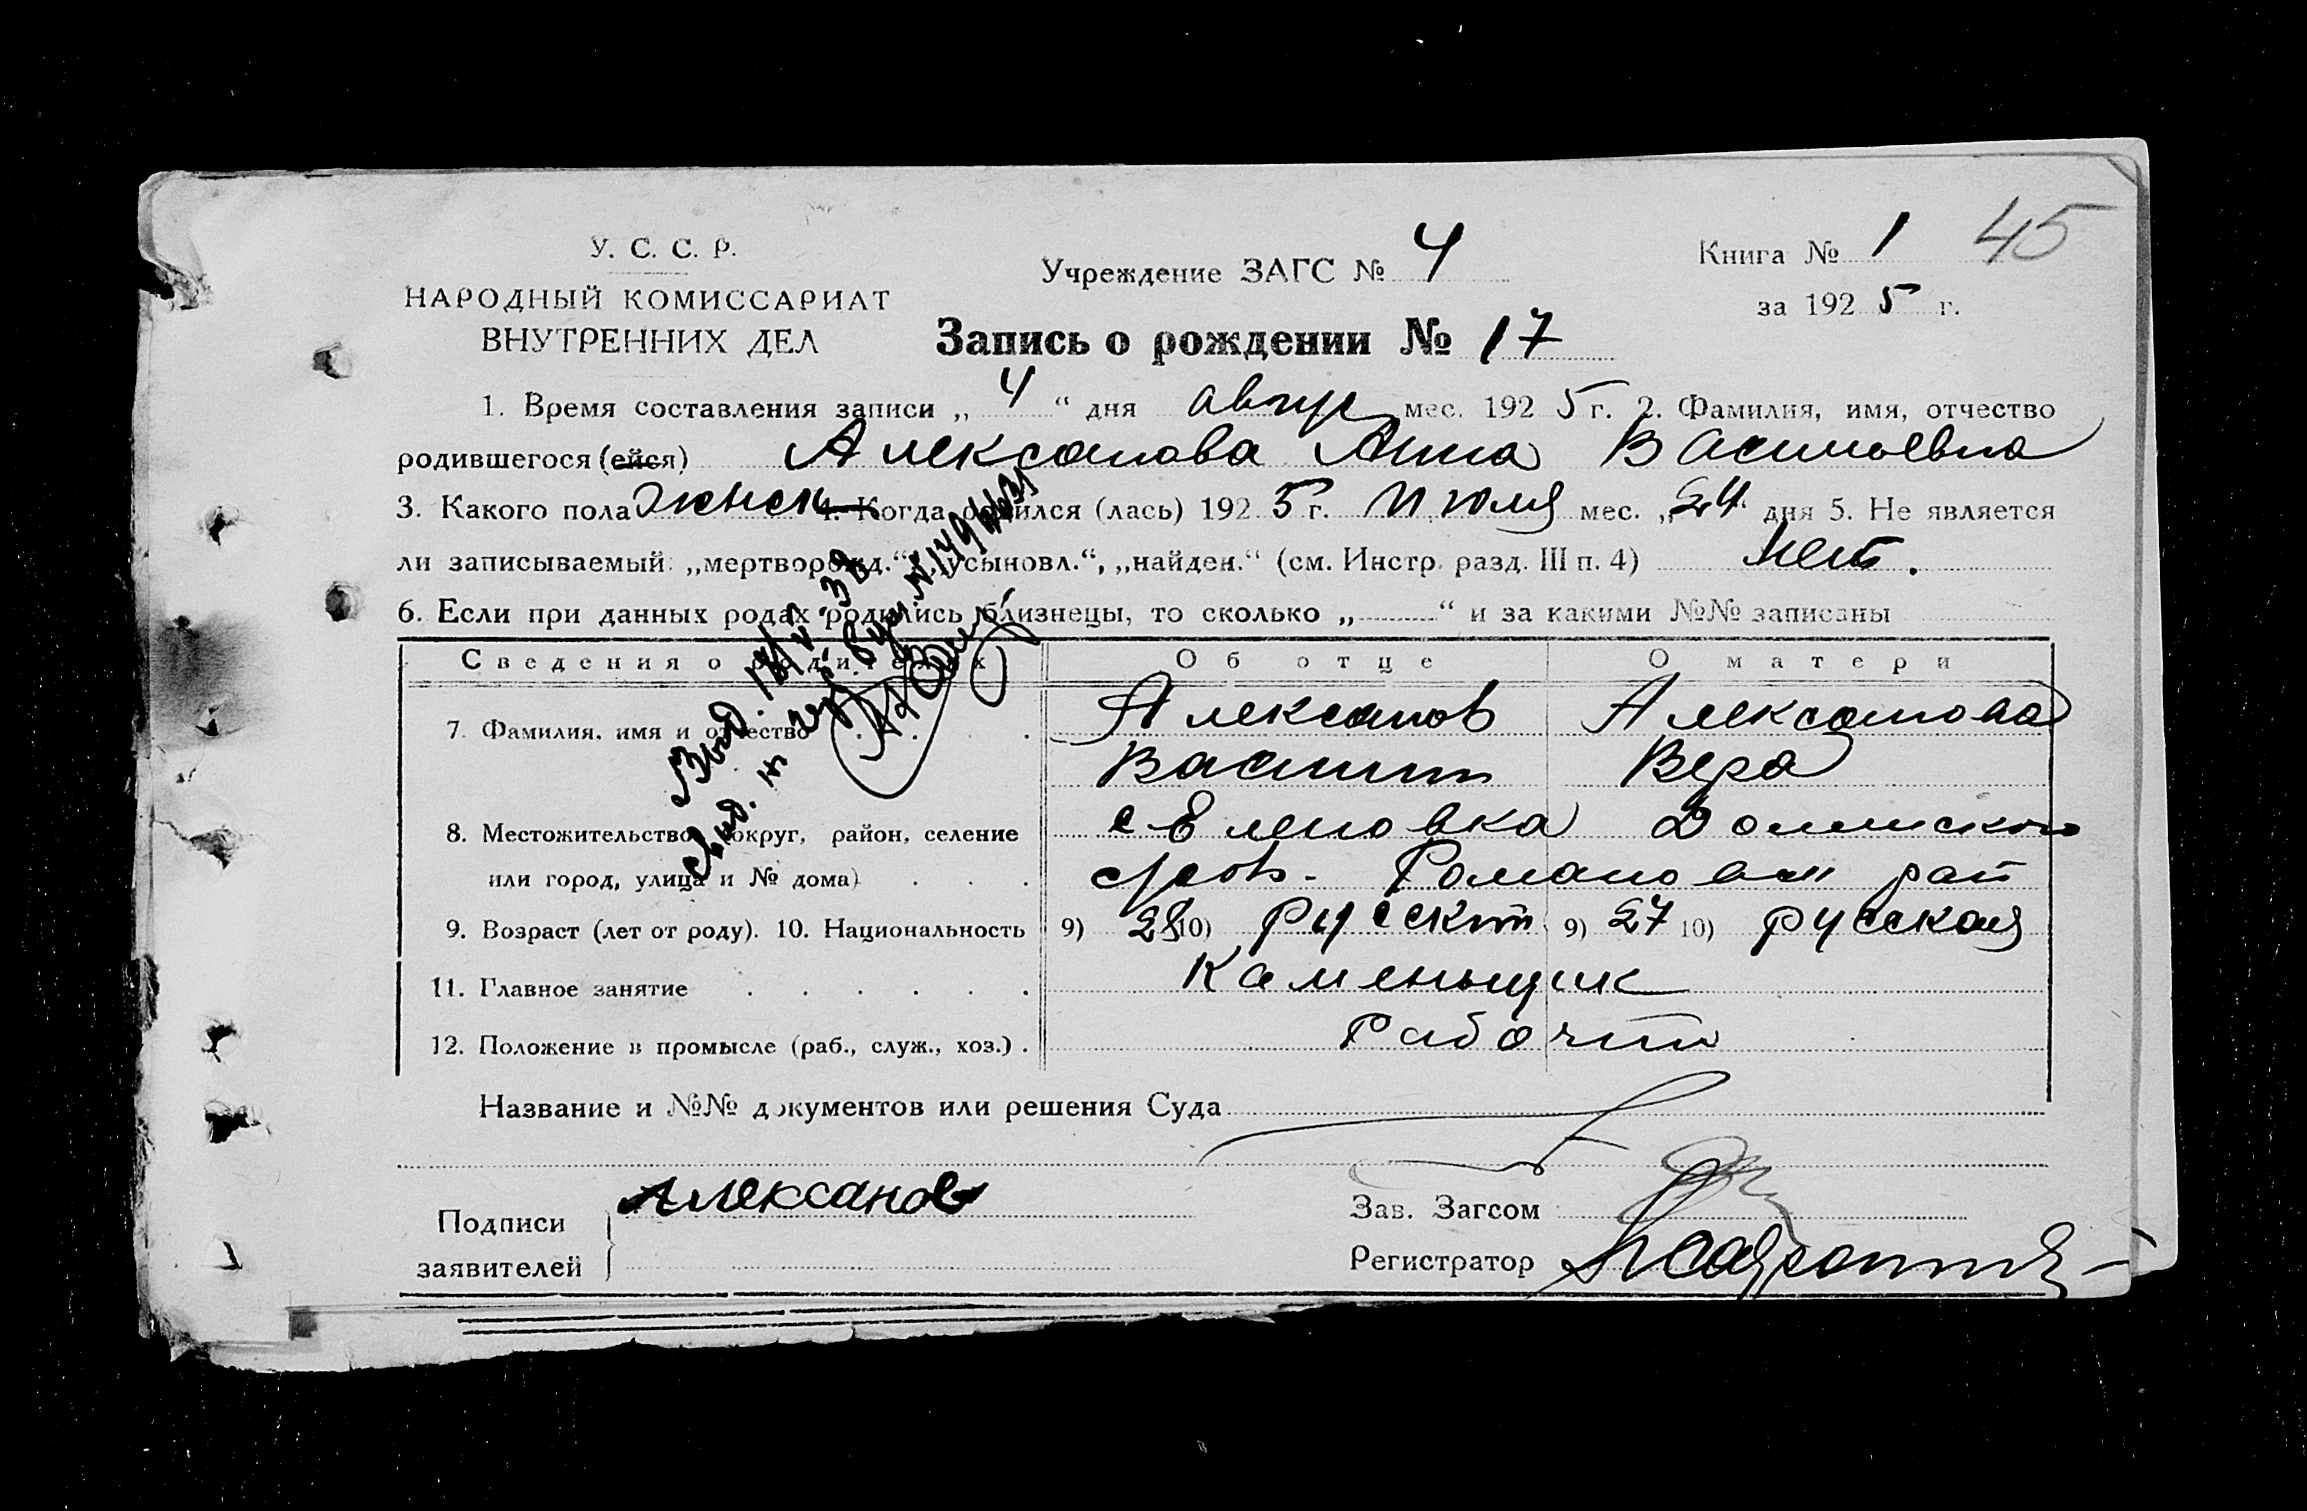 45
У. С. С. Р.
НАРОДНЫЙ КОМИССАРИАТ
ВНУТРЕННИХ ДЕЛ
Учреждение ЗАГС № 4
Книга № 1
за 1925 г.
Запись о рождении № 17
1. Время составления записи „4“ дня авгус мес. 1925 г. 2. Фамилия, имя, отчество
родившегося (ейся) Алексанова Анна Васильевна
3. Какого пола женск 4. Когда родился (лась) 1925 г. Июля мес. „24“ дня 5. Не является
ли записываемый: „мертворожд.“, „усыновл.“, „найден.“ (см. Инстр. разд. III п. 4) нет.
6. Если при данных родах родились близнецы, то сколько „ “ и за какими №№ записаны
Сведения о родителях Об отце О матери
7. Фамилия, имя и отчество Алексанов Алексанова
Василий Вера
8. Местожительство (округ, район, селение с Еленовка
или город, улица и № дома) Романовск рай
9. Возраст (лет от роду). 10. Национальность 9) 28 10) Русский 9) 27 10) русская
11. Главное занятие Каменьщик
12. Положение в промысле (раб., служ., хоз.) Рабочий
Название и №№ документов или решения Суда
Подписи заявителей Алексанов
Зав. Загсом
Регистратор
Выд.
свид.